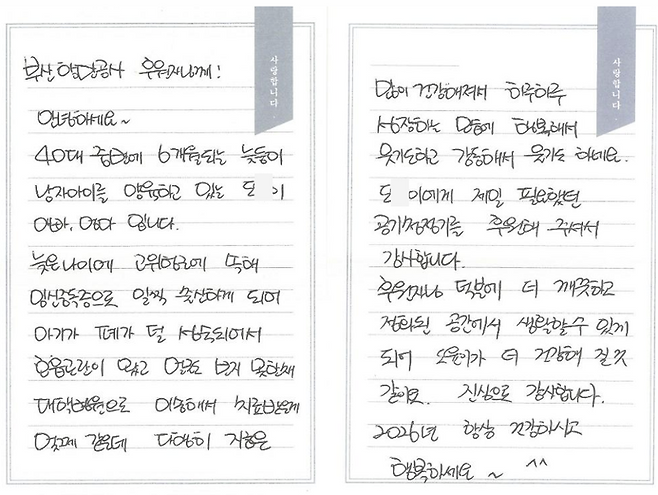 사랑합니다
부산항만공사 후원자님께!
안녕하세요~
40대 중반에 6개월되는 늦둥이
남자아이를 양육하고 있는 도 이
아빠, 엄마 입니다.
늦은나이에 고위험군에 속해
임신중독증으로 일찍 출산하게 되어
아기가 폐가 덜 성숙되어서
호흡곤란이 있고 얼굴도 보지 못한채
대학병원으로 이송해서 치료받은게
엊그제 같은데 다행히 지금은
사랑합니다
많이 건강해져서 하루하루
성장하는 모습에 행복해서
웃기도하고 감동해서 웃기도 하네요.
도 이에게 제일 필요했던
공기청정기를 후원해 주셔서
감사합니다.
후원자님 덕분에 더 깨끗하고
정화된 공간에서 생활할수 있게
되어 도윤이가 더 건강해 질것
같아요. 진심으로 감사합니다.
2026년 항상 건강하시고
행복하세요~ ^^